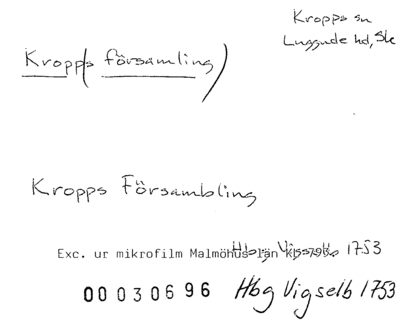 Kropps sn
Luggude hd, Sk
Kropp(s församling)
Kropps Försambling
Exc. ur mikrofilm Malmöhus län Hbg Vigselb 1753
00 030696 Hbg Vigselb 1753